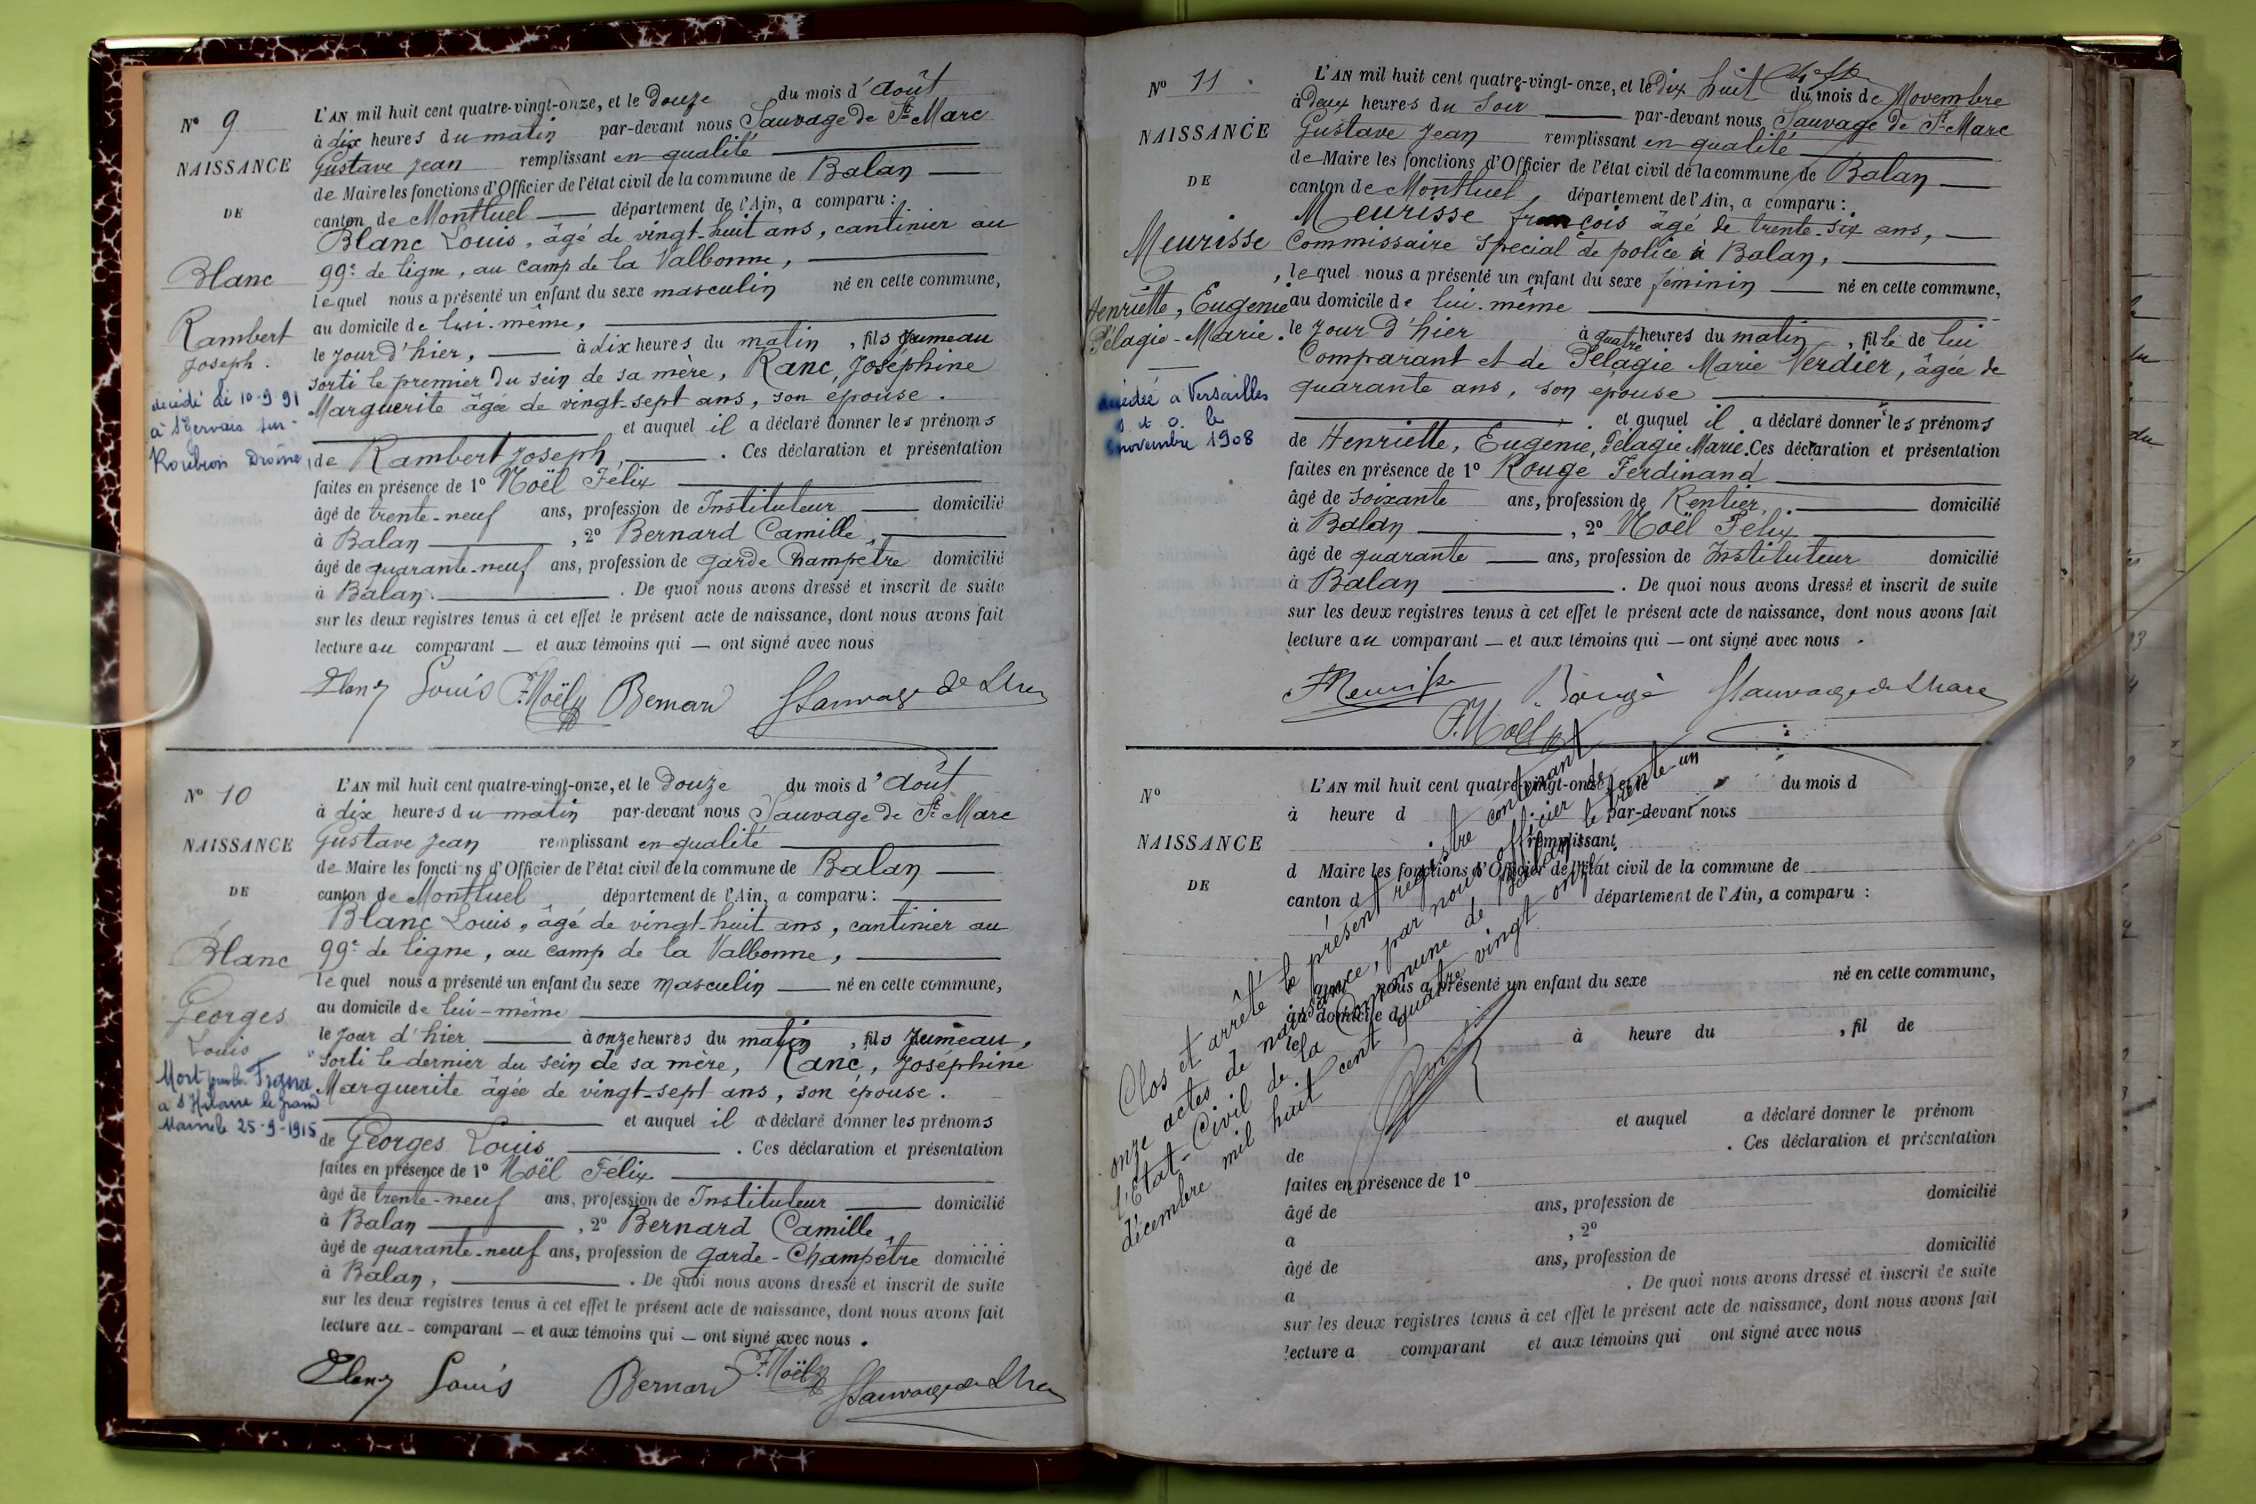 N° 9
NAISSANCE
DE
Blanc
Rambert
Joseph.
décédé le 10-9 91
à St Gervais sur-
Roubion Drôme
L'AN mil huit cent quatre-vingt-onze, et le Douze du mois d'Août
à dix heures du matin par-devant nous Sauvage de St Marc
Gustave Jean remplissant en qualité
de Maire les fonctions d'Officier de l'état civil de la commune de Balan
canton de Montluel département de l'Ain, a comparu :
Blanc Louis, âgé de vingt-huit ans, cantinier au
99e de ligne, au camp de la Valbonne,
lequel nous a présenté un enfant du sexe masculin né en cette commune,
au domicile de lui-même,
le jour d'hier, à dix heures du matin, fils jumeau
sorti le premier du sein de sa mère, Ranc, Joséphine
Marguerite âgée de vingt-sept ans, son épouse.
et auquel il a déclaré donner les prénoms
de Rambert Joseph, . Ces déclaration et présentation
faites en présence de 1° Noël Félix
âgé de trente-neuf ans, profession de Instituteur domicilié
à Balan , 2° Bernard Camille,
âgé de quarante-neuf ans, profession de garde Champêtre domicilié
à Balan. . De quoi nous avons dressé et inscrit de suite
sur les deux registres tenus à cet effet le présent acte de naissance, dont nous avons fait
lecture au comparant — et aux témoins qui — ont signé avec nous
Blanc Louis F. Noël Bernard Sauvage de St Marc
N° 10
NAISSANCE
DE
Blanc
Georges
Louis
Mort pour la France
à St Hilaire le grand
Marne le 25-9-1915
L'AN mil huit cent quatre-vingt-onze, et le Douze du mois d'Août
à dix heures du matin par-devant nous Sauvage de St Marc
Gustave Jean remplissant en qualité
de Maire les fonctions d'Officier de l'état civil de la commune de Balan
canton de Montluel département de l'Ain, a comparu :
Blanc Louis, âgé de vingt-huit ans, cantinier au
99e de ligne, au camp de la Valbonne,
lequel nous a présenté un enfant du sexe masculin né en cette commune,
au domicile de lui-même
le jour d'hier à onze heures du matin, fils jumeau,
sorti le dernier du sein de sa mère, Ranc, Joséphine
Marguerite âgée de vingt-sept ans, son épouse.
et auquel il a déclaré donner les prénoms
de Georges Louis . Ces déclaration et présentation
faites en présence de 1° Noël Félix
âgé de trente-neuf ans, profession de Instituteur domicilié
à Balan , 2° Bernard Camille,
âgé de quarante-neuf ans, profession de garde-Champêtre domicilié
à Balan, . De quoi nous avons dressé et inscrit de suite
sur les deux registres tenus à cet effet le présent acte de naissance, dont nous avons fait
lecture au - comparant — et aux témoins qui — ont signé avec nous.
Blanc Louis Bernard F. Noël Sauvage de St Marc
N° 11
NAISSANCE
DE
Meurisse
Henriette, Eugénie
Pélagie-Marie.
décédée à Versailles
S. et O. le
novembre 1908
L'AN mil huit cent quatre-vingt-onze, et le Dix huit du mois de Novembre
à Deux heures du Soir par-devant nous Sauvage de St Marc
Gustave Jean remplissant en qualité
de Maire les fonctions d'Officier de l'état civil de la commune de Balan
canton de Montluel, département de l'Ain, a comparu :
Meurisse françois âgé de trente-six ans,
Commissaire spécial de police à Balan,
, lequel nous a présenté un enfant du sexe féminin né en cette commune,
au domicile de lui-même
le jour d'hier à quatre heures du matin, fille de lui
Comparant et de Pélagie Marie Verdier, âgée de
quarante ans, son épouse
et auquel il a déclaré donner les prénoms
de Henriette, Eugénie, Pélagie Marie. Ces déclaration et présentation
faites en présence de 1° Rouge Ferdinand
âgé de soixante ans, profession de Rentier, domicilié
à Balan , 2° Noël Félix
âgé de quarante ans, profession de Instituteur domicilié
à Balan . De quoi nous avons dressé et inscrit de suite
sur les deux registres tenus à cet effet le présent acte de naissance, dont nous avons fait
lecture au comparant — et aux témoins qui — ont signé avec nous.
F. Meurisse Rouge Sauvage de St Marc
F. Noël
N°
NAISSANCE
DE
L'AN mil huit cent quatre-vingt-onze, et le du mois d
à heure d par-devant nous
remplissant
d Maire les fonctions d'Officier de l'état civil de la commune de
canton d département de l'Ain, a comparu :
quel nous a présenté un enfant du sexe né en cette commune,
au domicile d
le à heure du , fil de
et auquel a déclaré donner le prénom
de . Ces déclaration et présentation
faites en présence de 1°
âgé de ans, profession de domicilié
a , 2°
âgé de ans, profession de domicilié
a . De quoi nous avons dressé et inscrit de suite
sur les deux registres tenus à cet effet le présent acte de naissance, dont nous avons fait
lecture a comparant et aux témoins qui ont signé avec nous
Clos et arrêté le présent registre contenant
onze actes de naissance, par nous officier de
l'Etat-Civil de la Commune de Balan le trente-un
décembre mil huit cent quatre vingt onze.